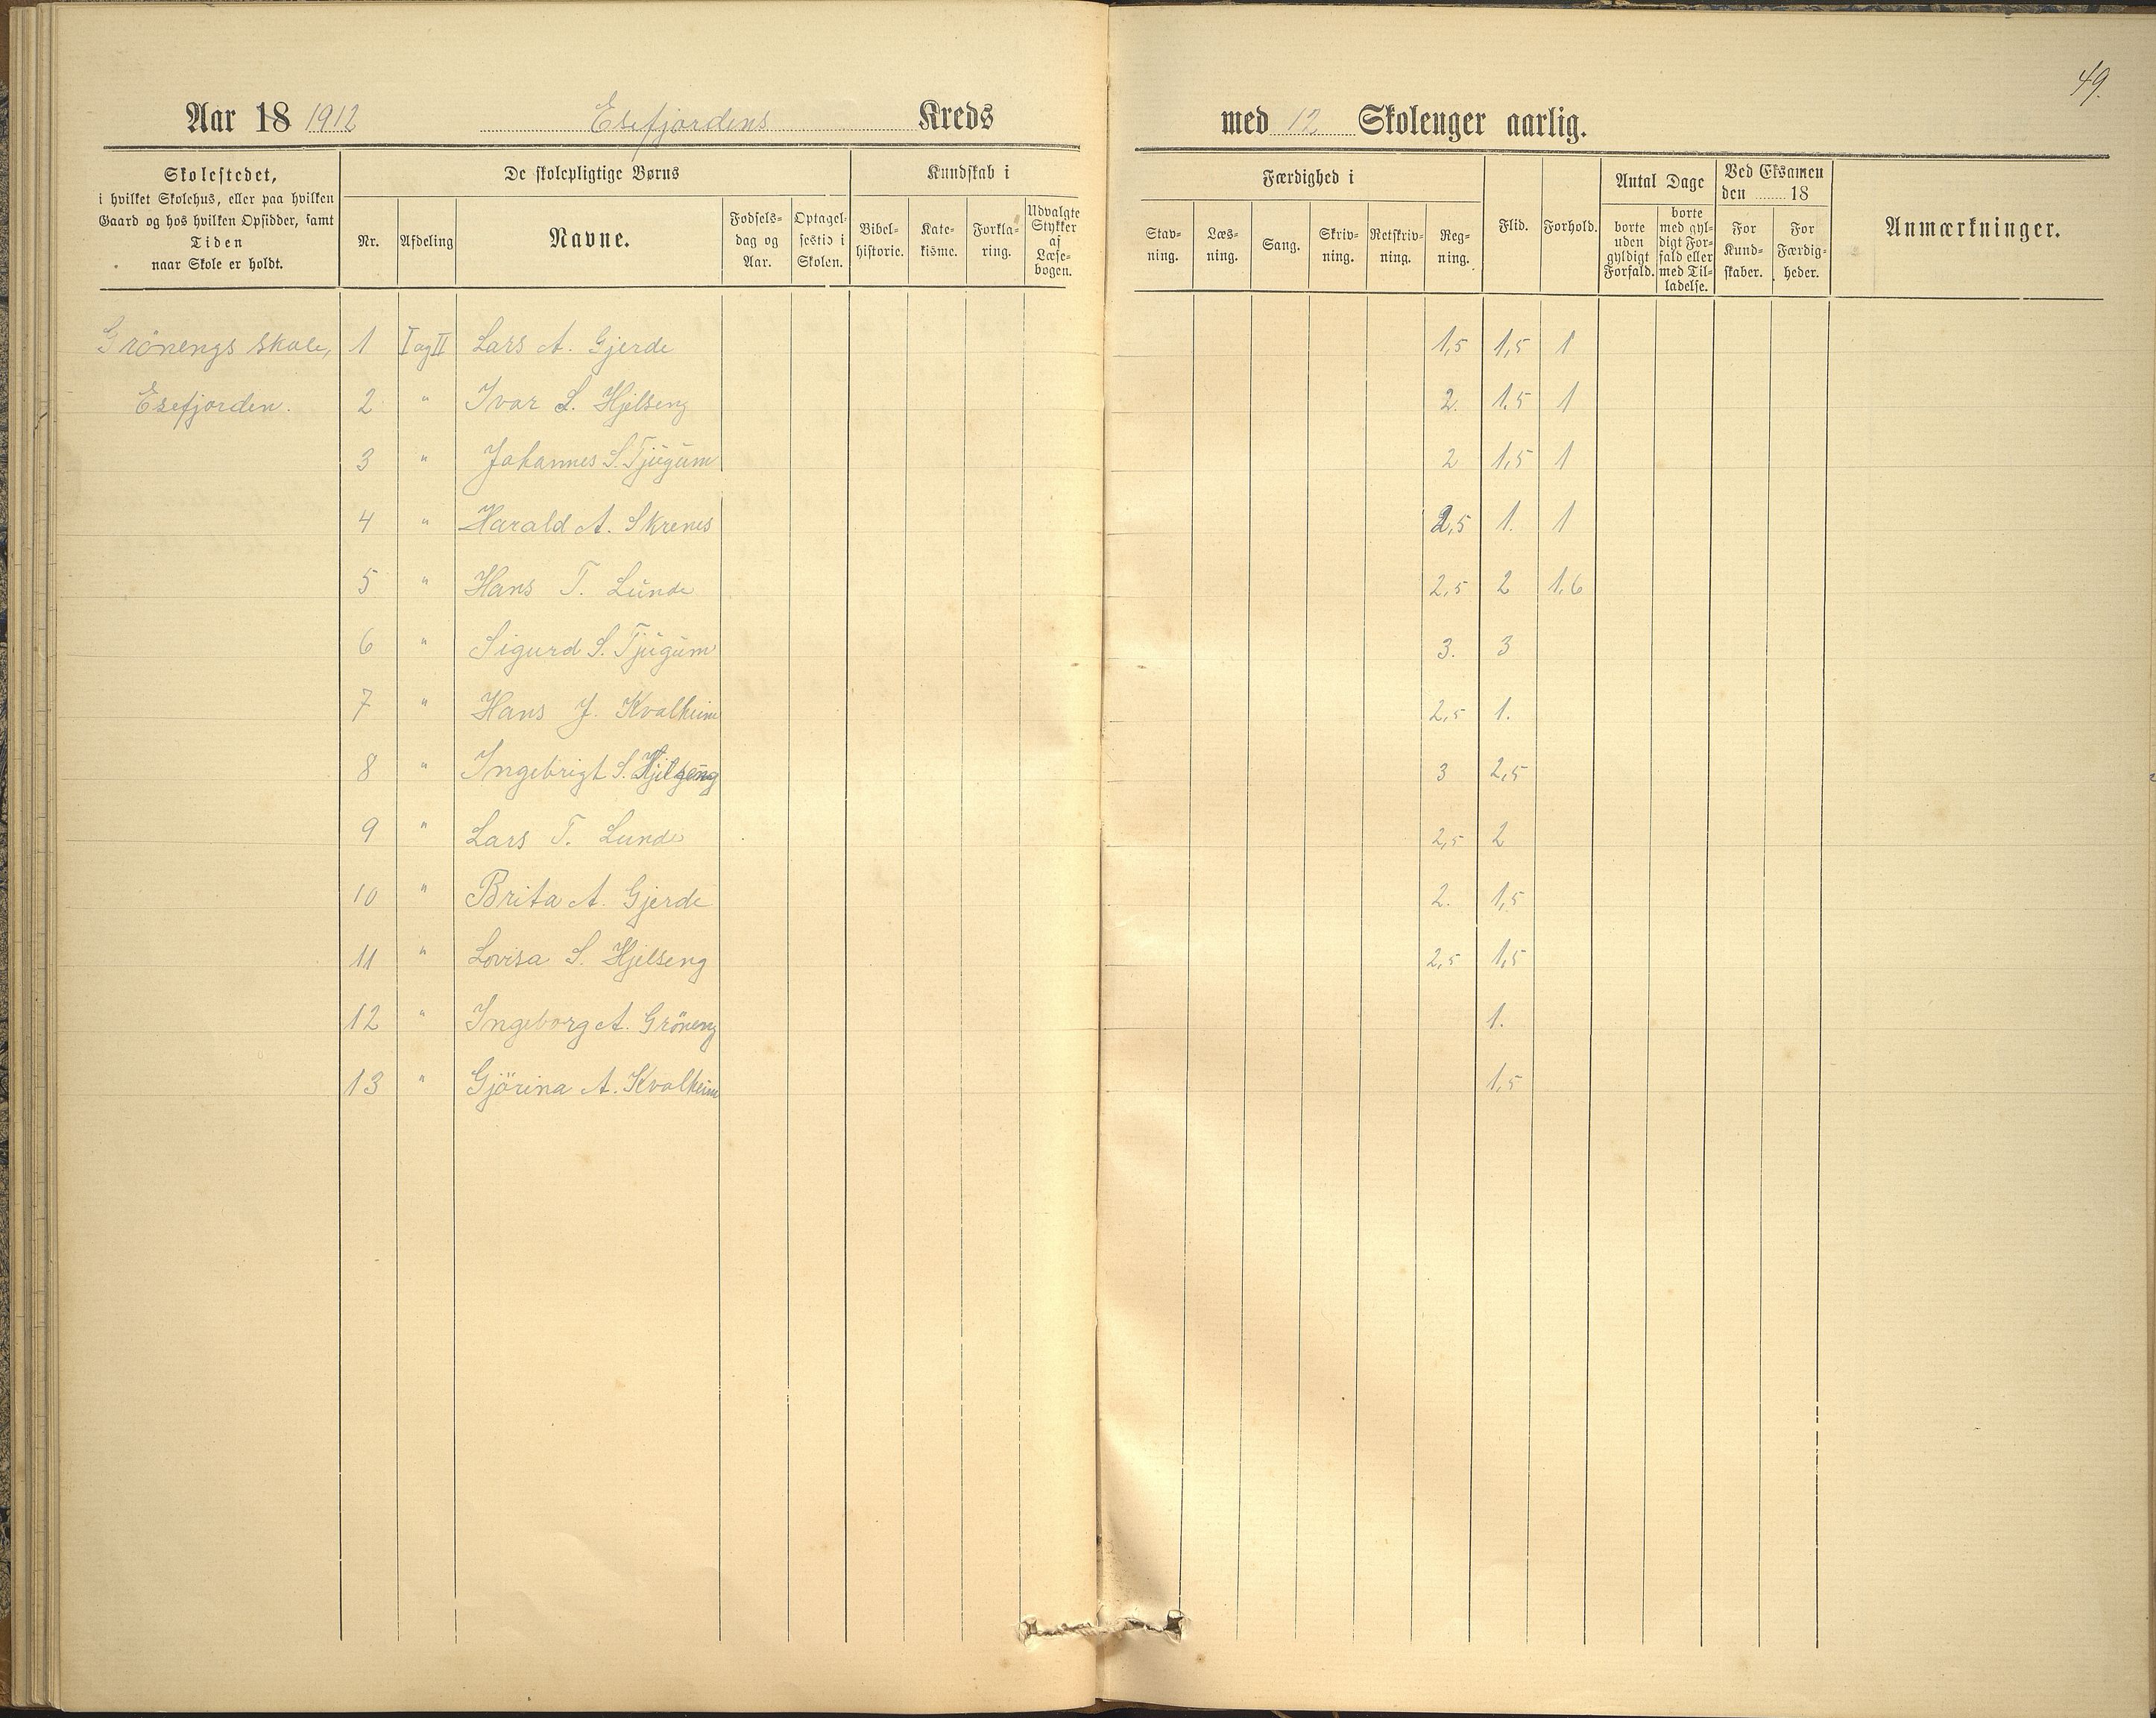 49.
Aar 18 1912 Esefjordens Kreds med 12 Skoleuger aarlig.
Skolestedet,
i hvilket Skolehus, eller paa hvilken
Gaard og hos hvilken Opsidder, samt
Tiden
naar Skole er holdt.
De skolepligtige Børns
Nr.
Afdeling
Navne.
Fødsels-
dag og
Aar.
Optagel-
sestid i
Skolen.
Kundskab i
Bibel-
historie.
Kate-
kisme.
Forkla-
ring.
Udvalgte
Stykker
af
Læse-
bogen.
Færdighed i
Stav-
ning.
Læs-
ning.
Sang.
Skriv-
ning.
Retskriv-
ning.
Reg-
ning.
Flid.
Forhold.
Antal Dage
borte
uden
gyldigt
Forfald.
borte
med gyl-
digt For-
fald eller
med Til-
ladelse.
Ved Eksamen
den ........ 18
For
Kund-
skaber.
For
Færdig-
heder.
Anmærkninger.
Grönengs skole, 1 I og II Lars A. Gjerde 1,5 1,5 1
Esefjorden. 2 " Ivar L. Hjelseng 2. 1.5 1
3 " Johannes S. Tjugum 2 1,5 1
4 " Harald A. Skrenes 2,5 1. 1
5 " Hans T. Lunde 2,5 2 1.6
6 " Sigurd S. Tjugum 3. 3
7 " Hans J. Kvalheim 2,5 1.
8 " Ingebrigt S. Hjelseng 3 2,5
9 " Lars T. Lunde 2,5 2
10 " Brita A. Gjerde 2. 1,5
11 " Lovisa S. Hjelseng 2,5 1,5
12 " Ingeborg A. Gröneng 1.
13 " Gjörina A. Kvalheim 1,5